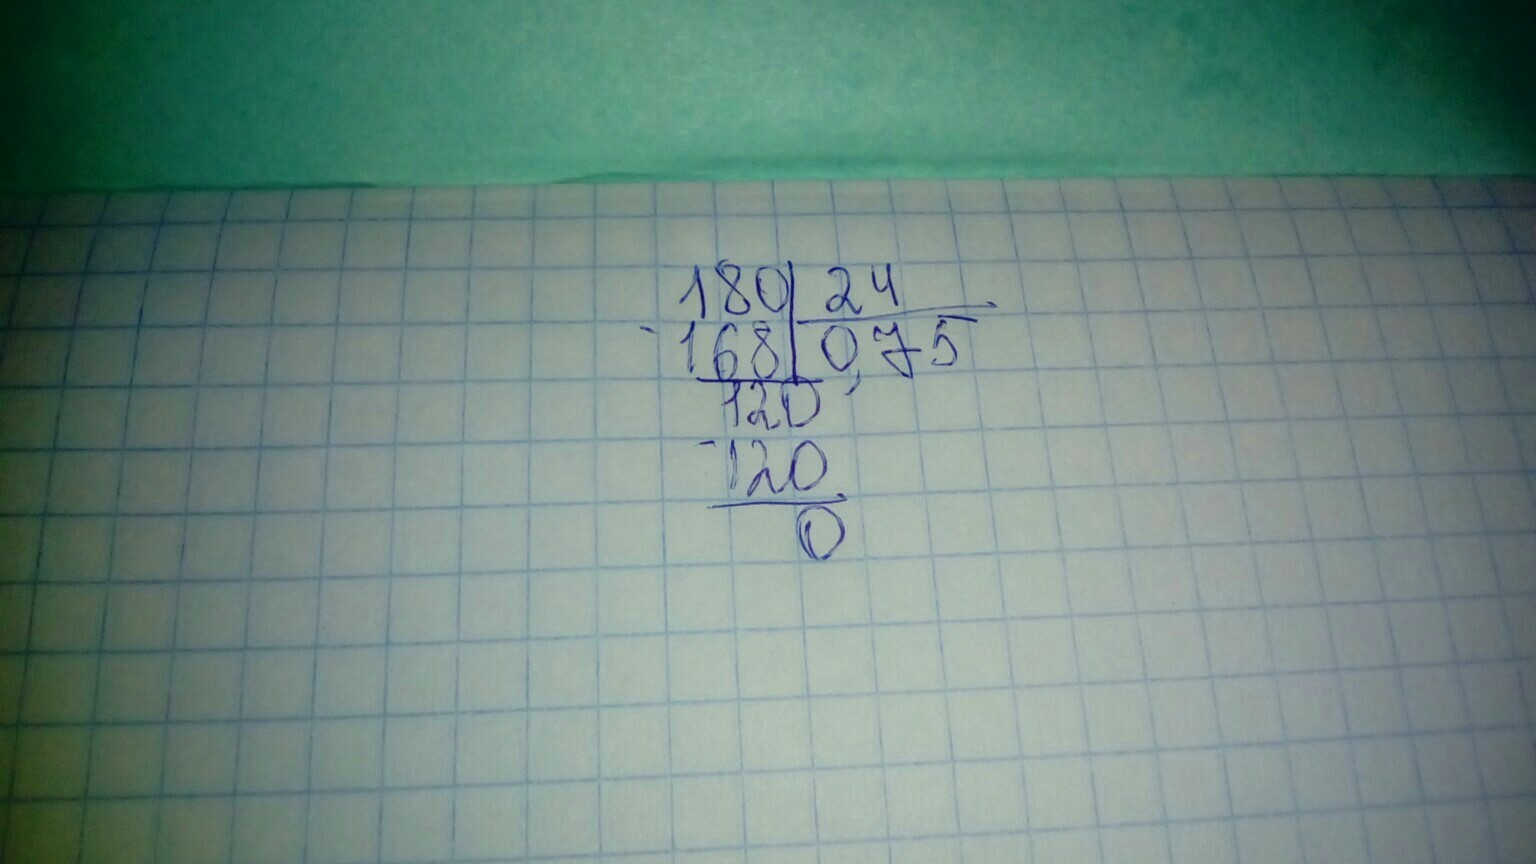 180 24
-168 0,75
120
-120
0